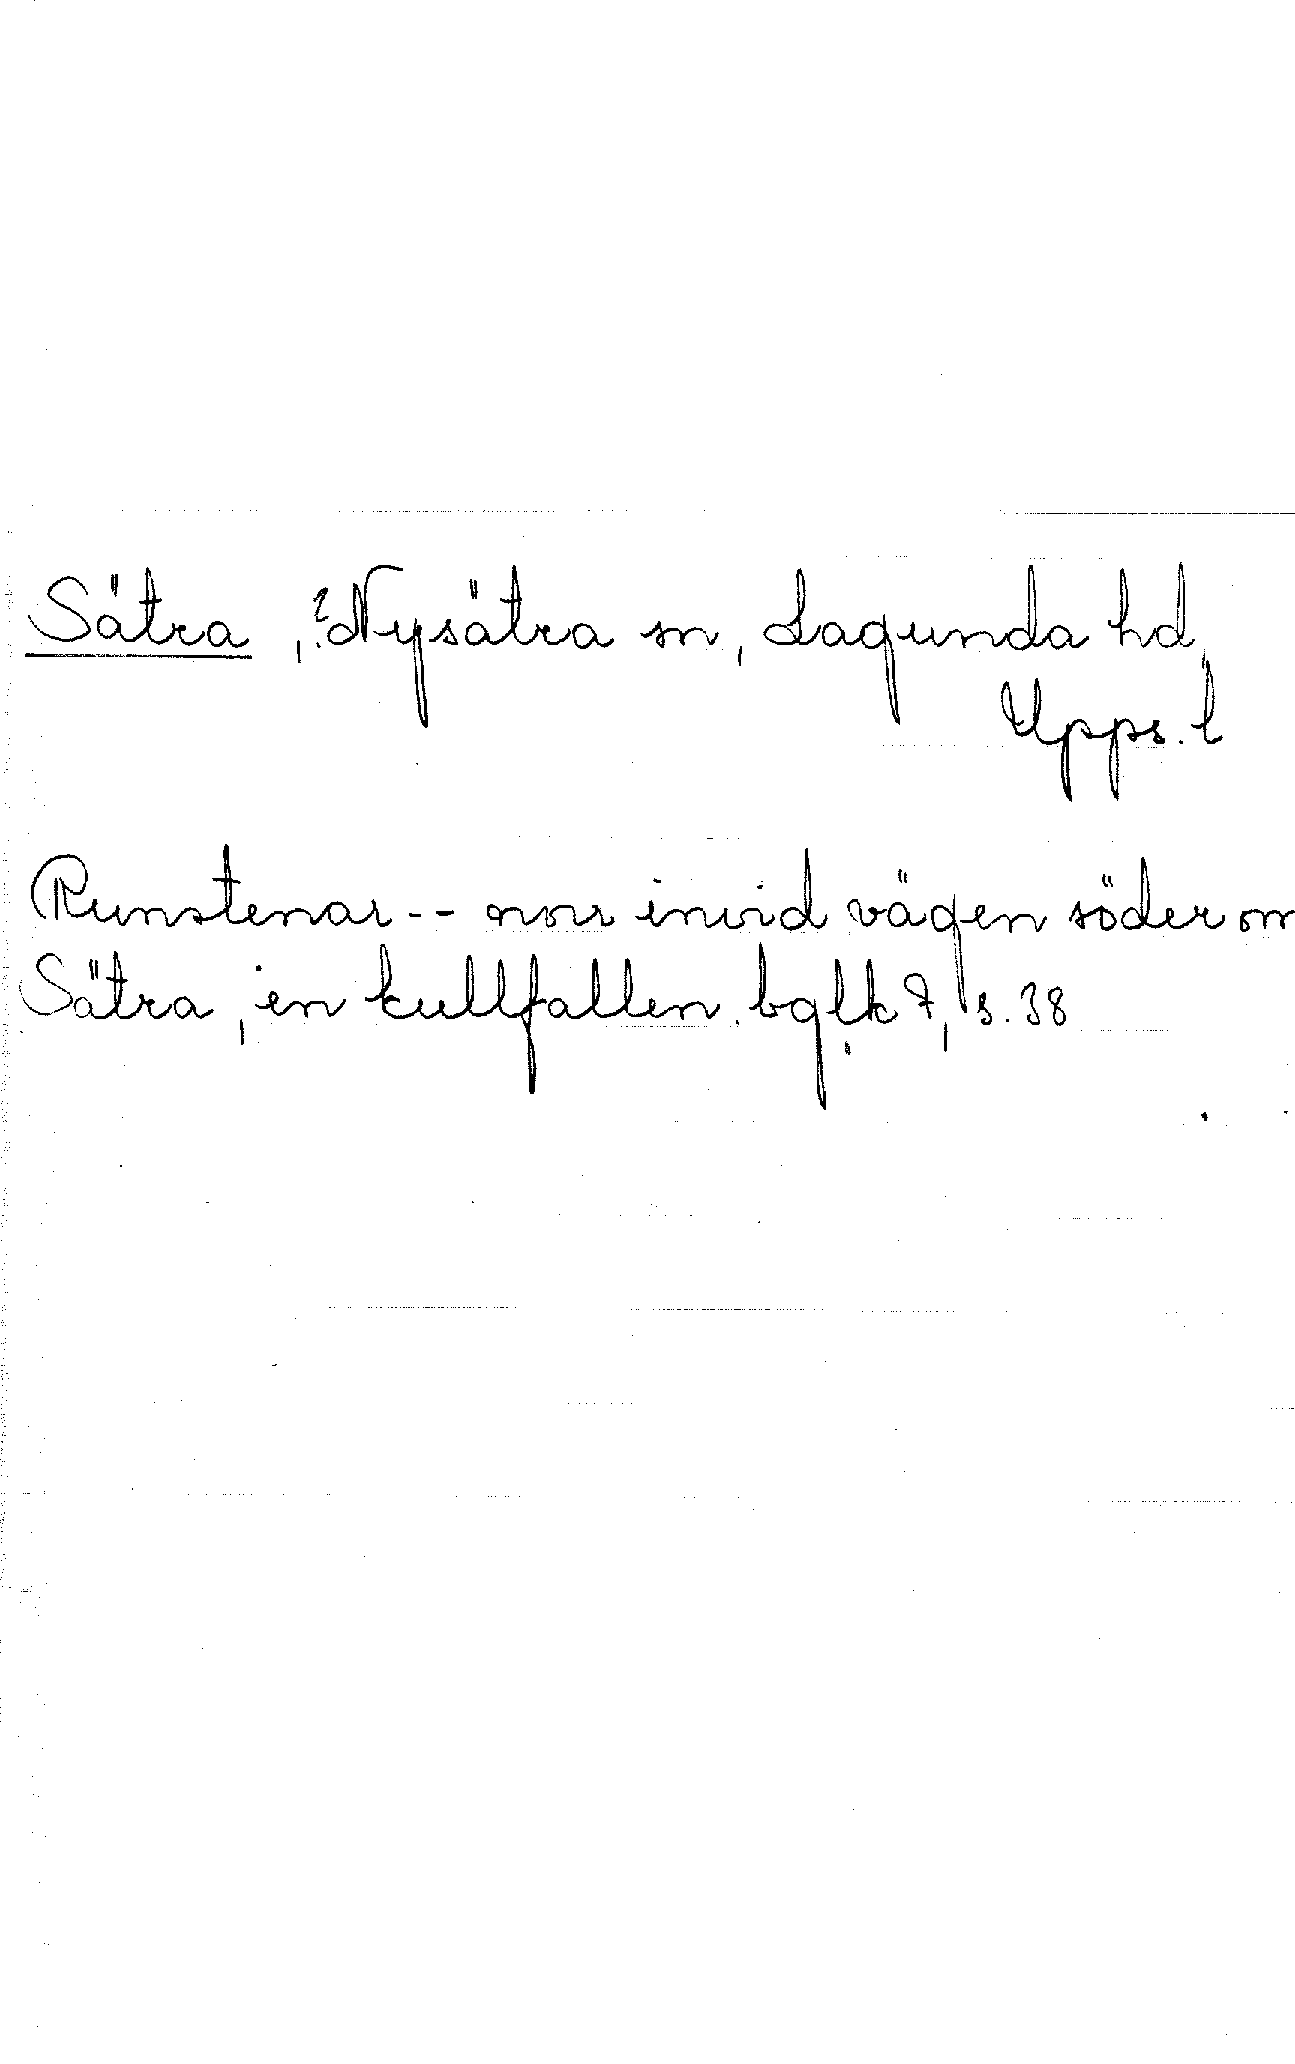 Sätra, ?Nysätra sn, Lagunda hd,
Upps. l
Runstenar -- norr invid vägen söder om
Sätra, en kullfallen. bglk 7, s. 38